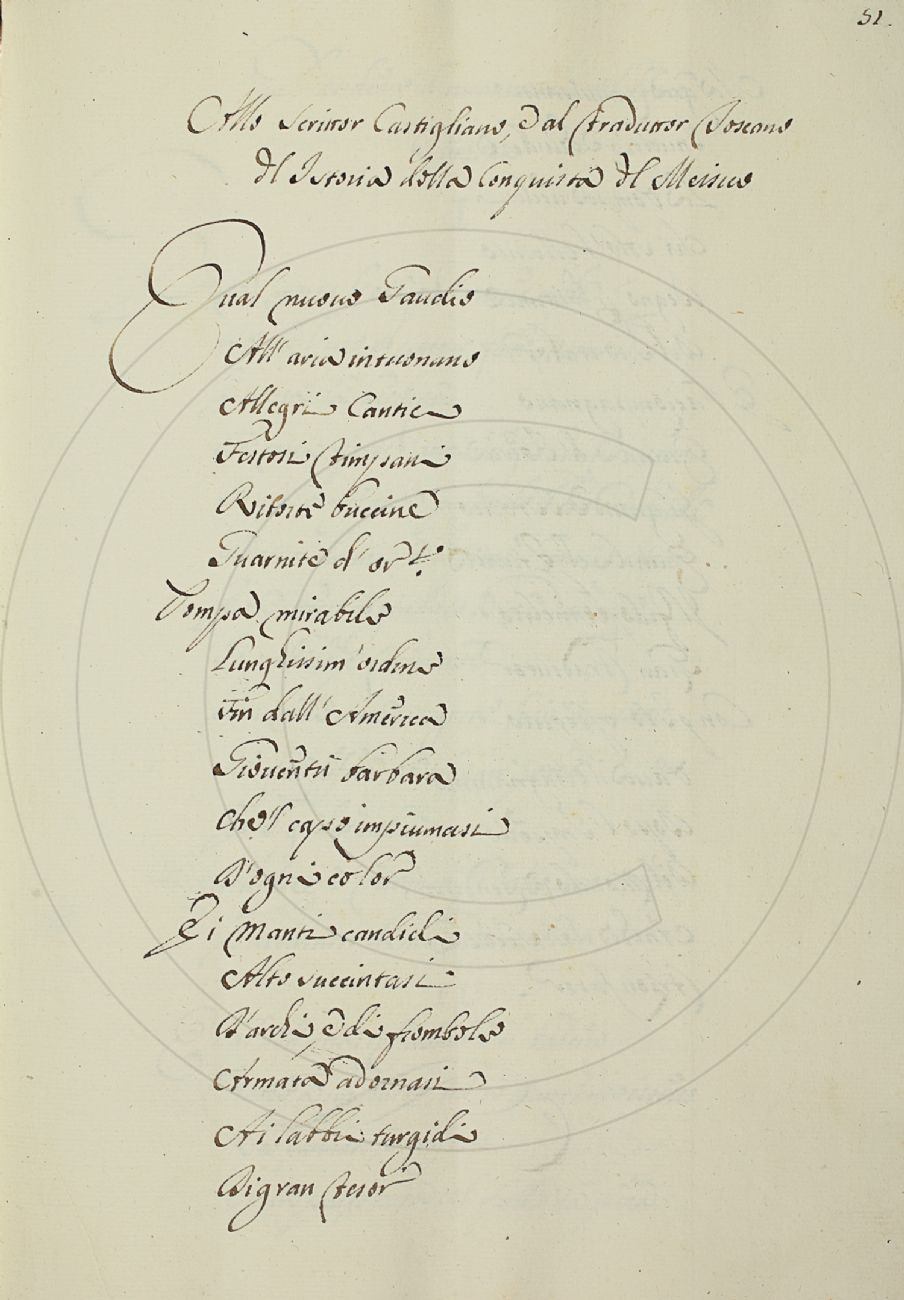 51.
Allo Scrittor Castigliano, è al Traduttor Toscano
dl Istoria della Conquista dl Messico
Qual nuovo Gaudio
All' aria intuonano
Allegri Cantici
Festosi Timpani
Ritorte buccine
Guarnite d' or
Pompa mirabile
Lunghissim' ordine
Fin dall' America
Gioventù barbara
Che'l capo impiumasi
D'ogni color
Di Manti candidi
Alto succintasi
D'archi, è di frombole
Armata adornasi
Ai labbri turgidi
Di gran tesor